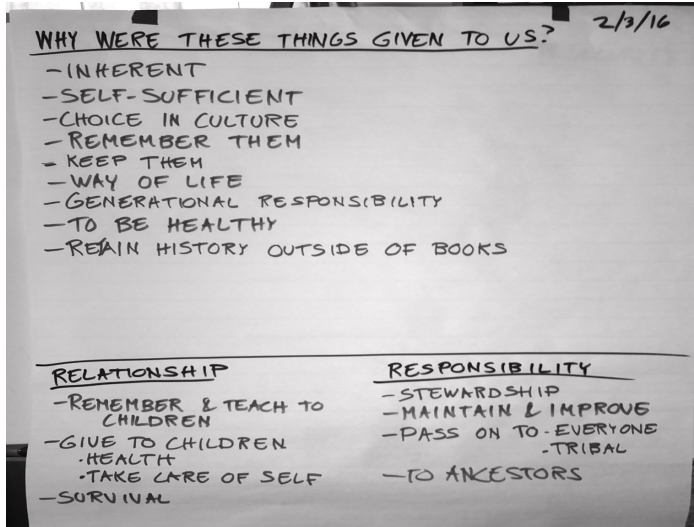 2/3/16
WHY WERE THESE THINGS GIVEN TO US?
- INHERENT
- SELF-SUFFICIENT
- CHOICE IN CULTURE
- REMEMBER THEM
- KEEP THEM
- WAY OF LIFE
- GENERATIONAL RESPONSIBILITY
- TO BE HEALTHY
- RETAIN HISTORY OUTSIDE OF BOOKS
RELATIONSHIP
- REMEMBER & TEACH TO
CHILDREN
- GIVE TO CHILDREN
• HEALTH
• TAKE CARE OF SELF
- SURVIVAL
RESPONSIBILITY
- STEWARDSHIP
- MAINTAIN & IMPROVE
- PASS ON TO - EVERYONE
- TRIBAL
- TO ANCESTORS